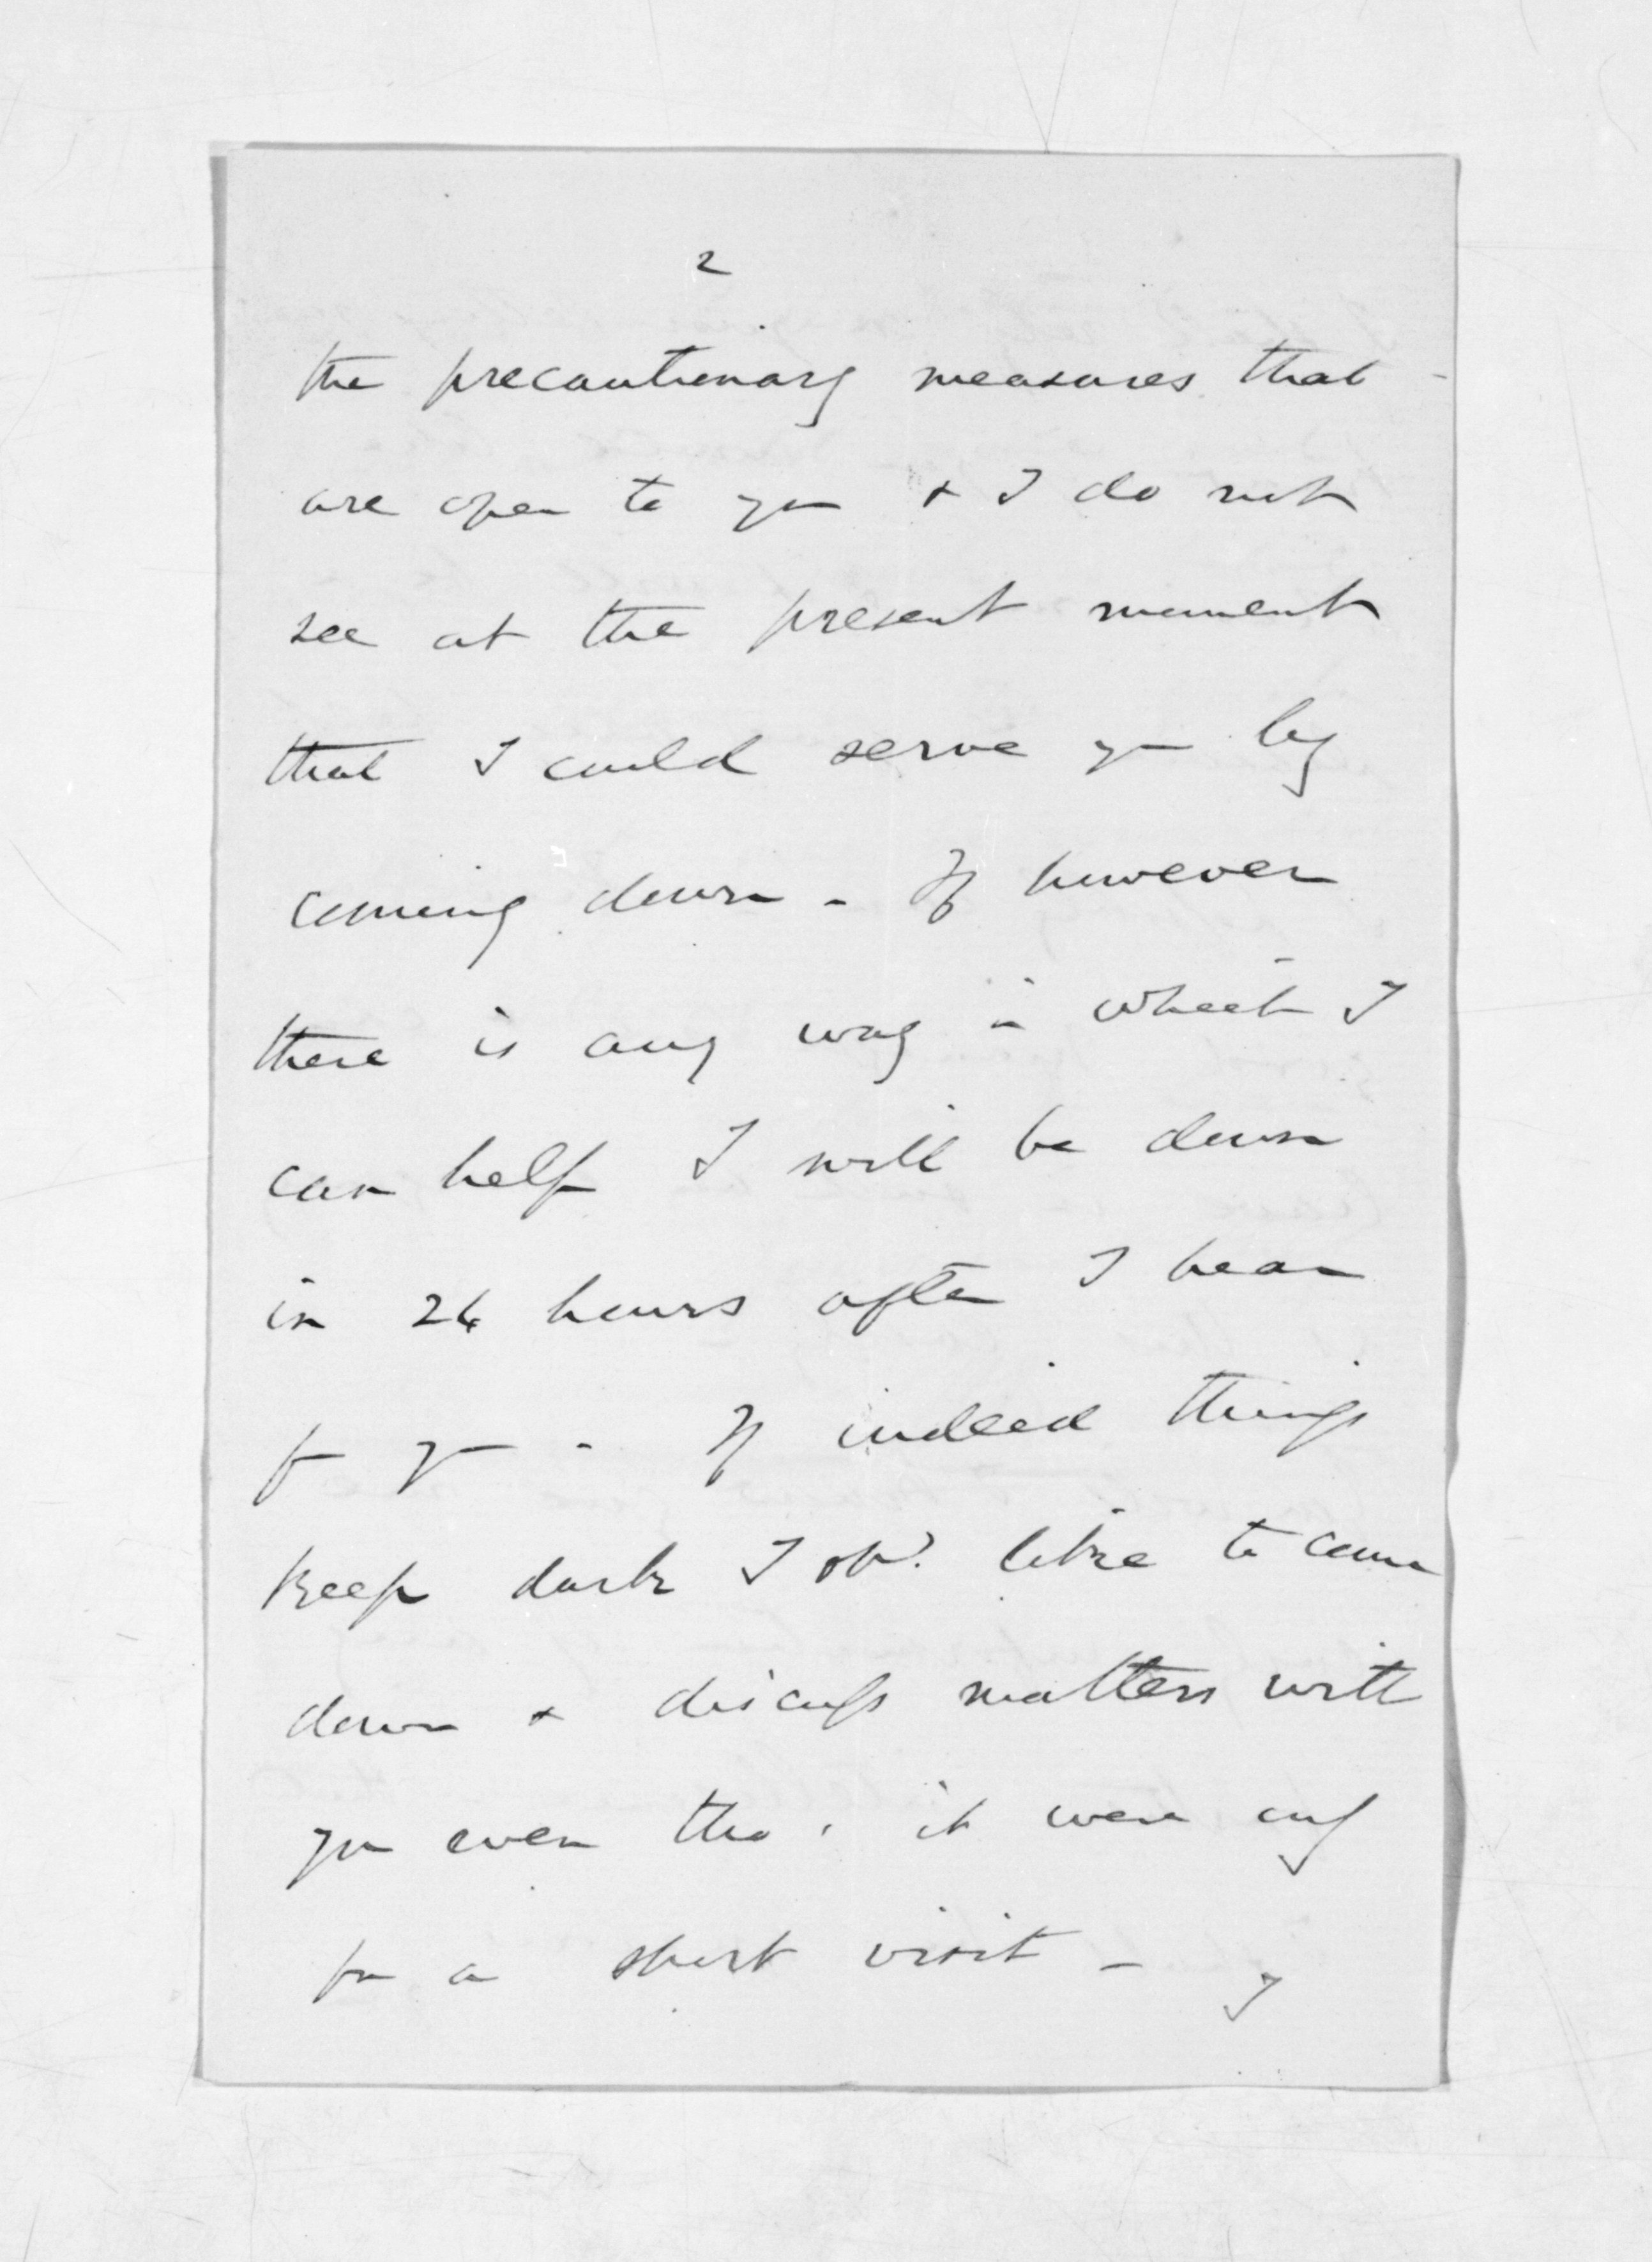 2
the precautionary measures that
are open to you & I do not
see at the present moment
that I could serve you by
coming down - If however
there is any way in which I
can help I will be down
in 24 hours after I hear
fr you - If indeed things
keep dark I shd. like to come
down & discuss matters with
you even tho' it were only
for a short visit - I